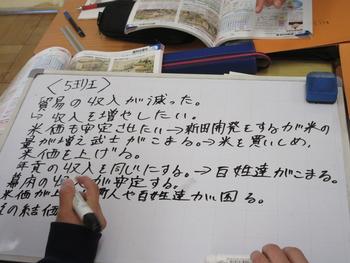 〈5班〉
貿易の収入が減った。
↳収入を増やしたい。
米価も安定させたい→新田開発をするが米の
量が増え武士がこまる。→米を買いしめ、
米価を上げる。
年貢の収入を同じにする。→百姓達がこまる。
幕府の収入が安定する。
米価が 人や百姓達が困る。
その結